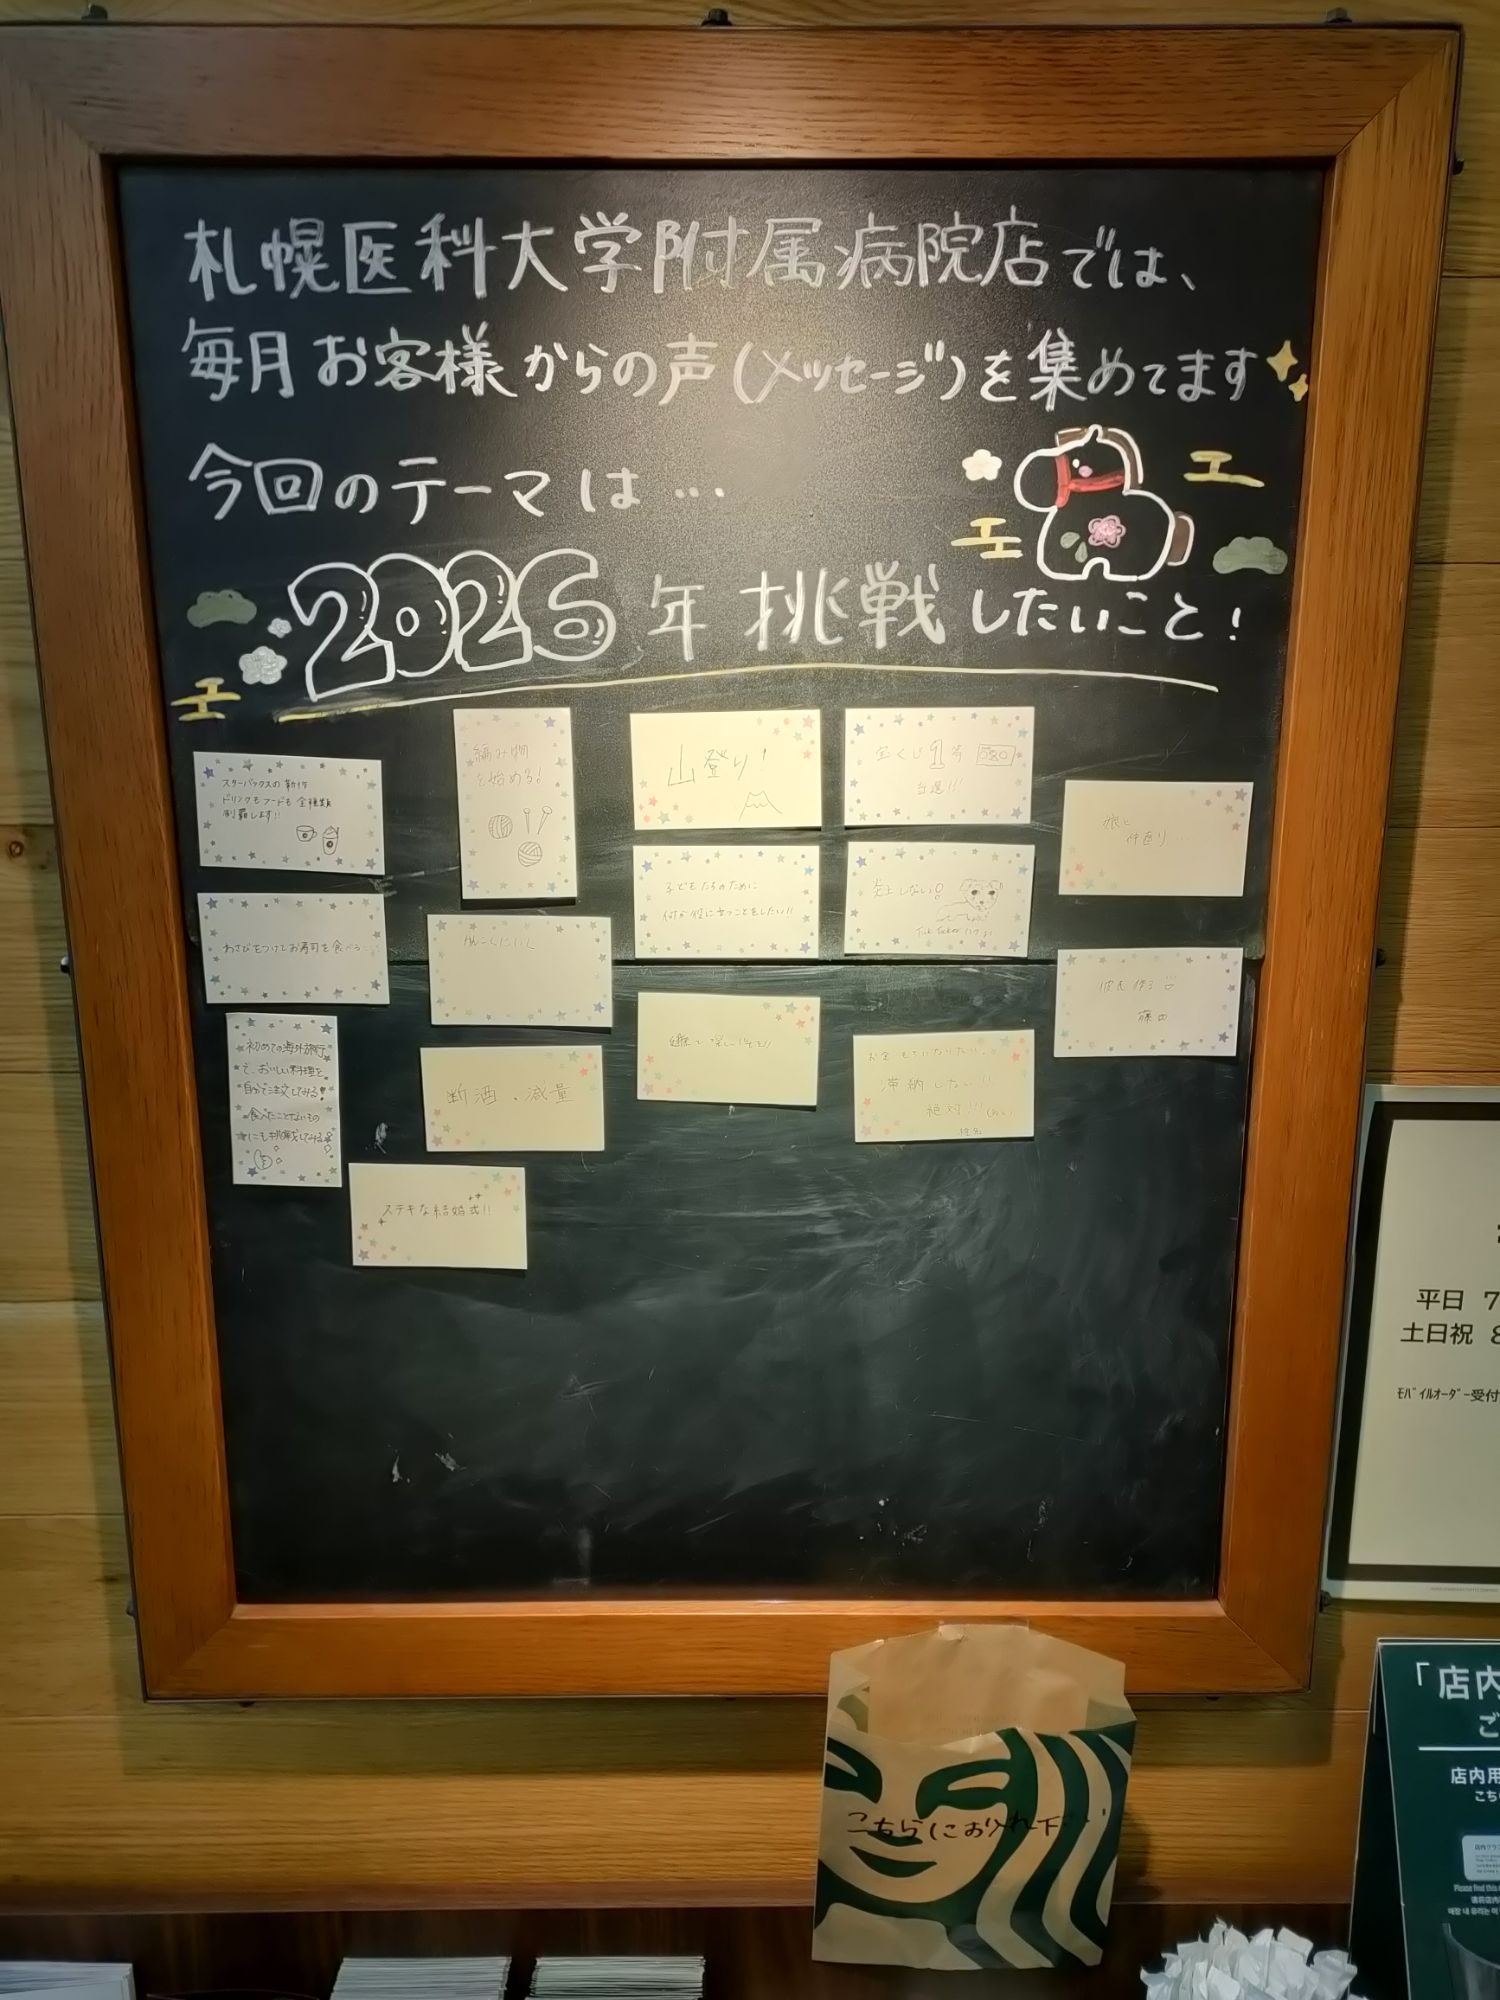 札幌医科大学附属病院店では、
毎月お客様からの声(メッセージ)を集めてます
今回のテーマは…
2026年 挑戦したいこと!
スターバックスの新作
ドリンクもフードも全種類
制覇します!!
編み物
を始める!
山登り!
宝くじ1等
当選!!!
娘と
仲直り…
わさびをつけてお寿司を食べる
子どもたちのために
何か役に立つことをしたい!!
炎上しない!
初めての海外旅行
で、おいしい料理を
自分で注文してみる!
食べたことないもの
にも挑戦してみる!
断酒、減量
お金もちになりたい。
滞納しない!!!
絶対!!!
彼氏作る
藤田
ステキな結婚式!!
平日 7
土日祝 8
モバイルオーダー受付
こちらにお入れ下さい
「店内
ご
店内用
こち
Please find this